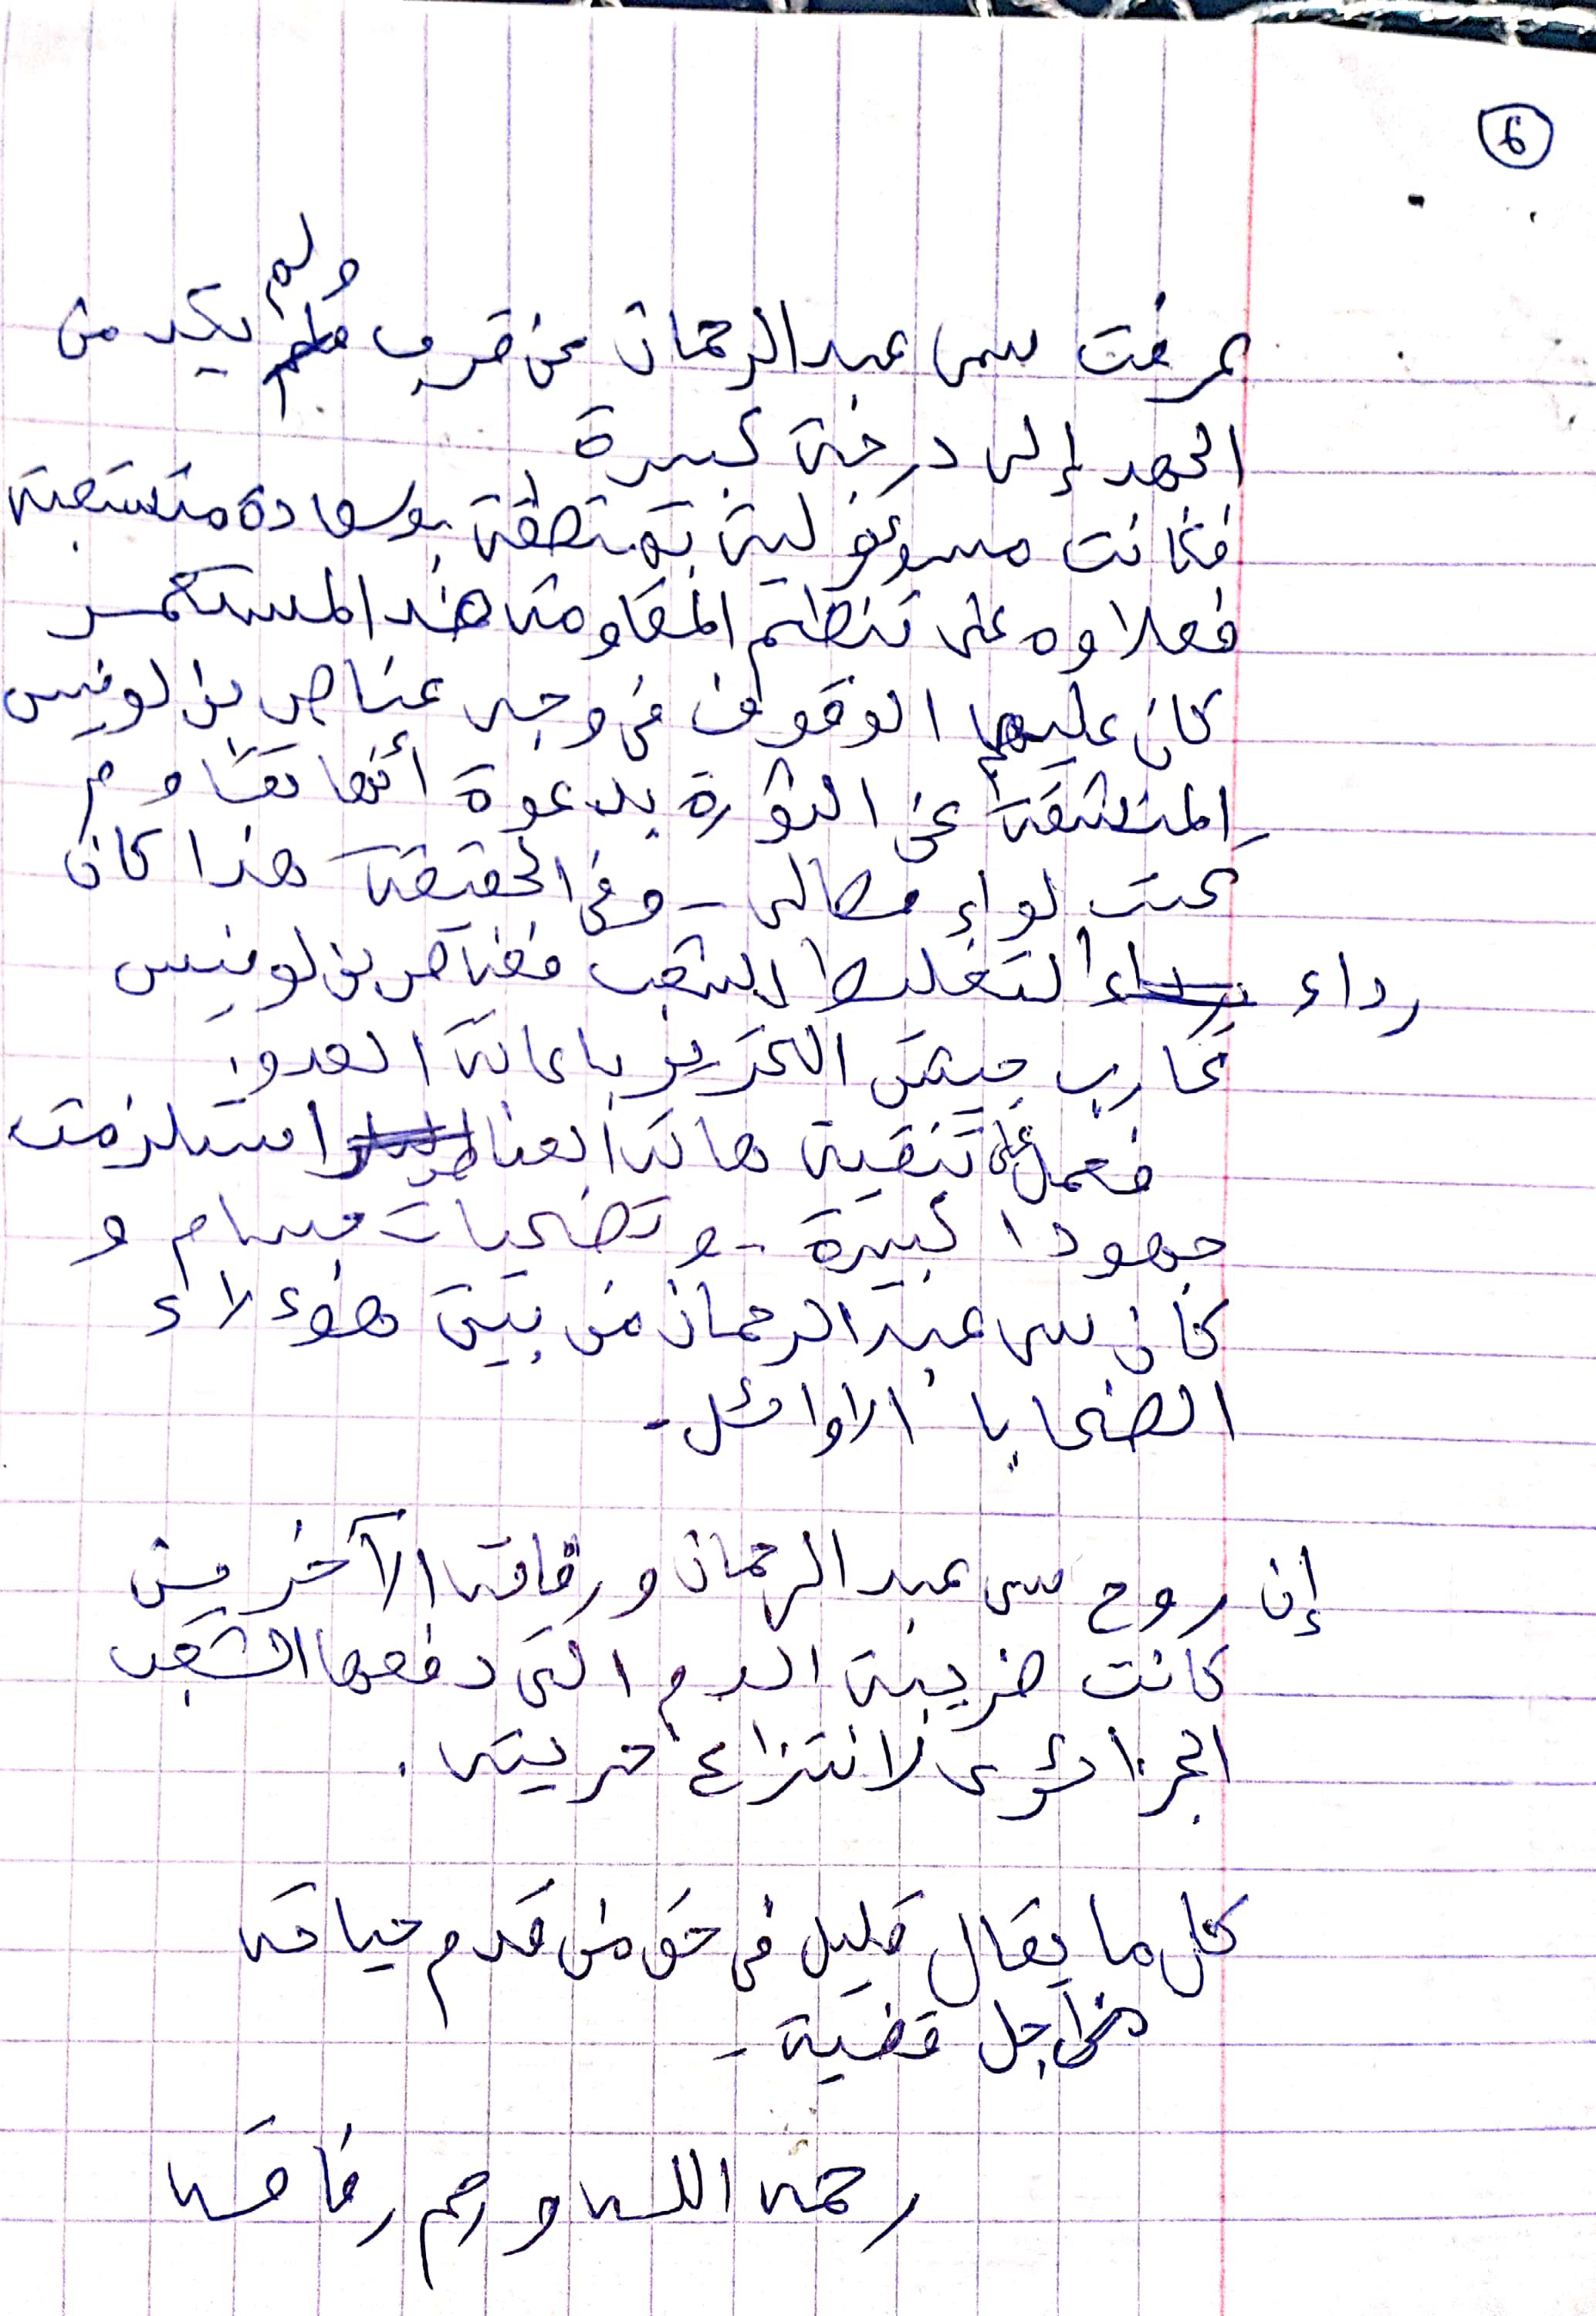 6
عرفت سي عبد الرحمان عن قرب ولم يكد من
الجهد إلى درجة كبيرة
فكانت مسؤولية بمنطقة بوسعادة متشعبة
فعلاوه على تنظيم المقاومة ضد المستعمر
كان عليهم الوقوف في وجه عناصر بن لونيس
المنشقة عن الثورة بدعوة أنها تقاوم
تحت لواء مصالي - وفي الحقيقة هذا كان
رداء لتغليط الشعب فعناصر بن لونيس
تحارب جيش التحرير باعانة العدو.
فعمل على تنقية هاته العناصر استلزمت
جهودا كبيرة - وتضحيات جسام و
كان سي عبد الرحمان من بين هؤلاء
الضحايا الاوائل -
إن روح سي عبد الرحمان ورفاقه الآخرين
كانت ضريبة الدم التي دفعها الشعب
الجزائري لانتزاع حريته .
كل ما يقال قليل في حق من قدم حياته
من اجل قضية -
رحمه الله ورحم رفاقه